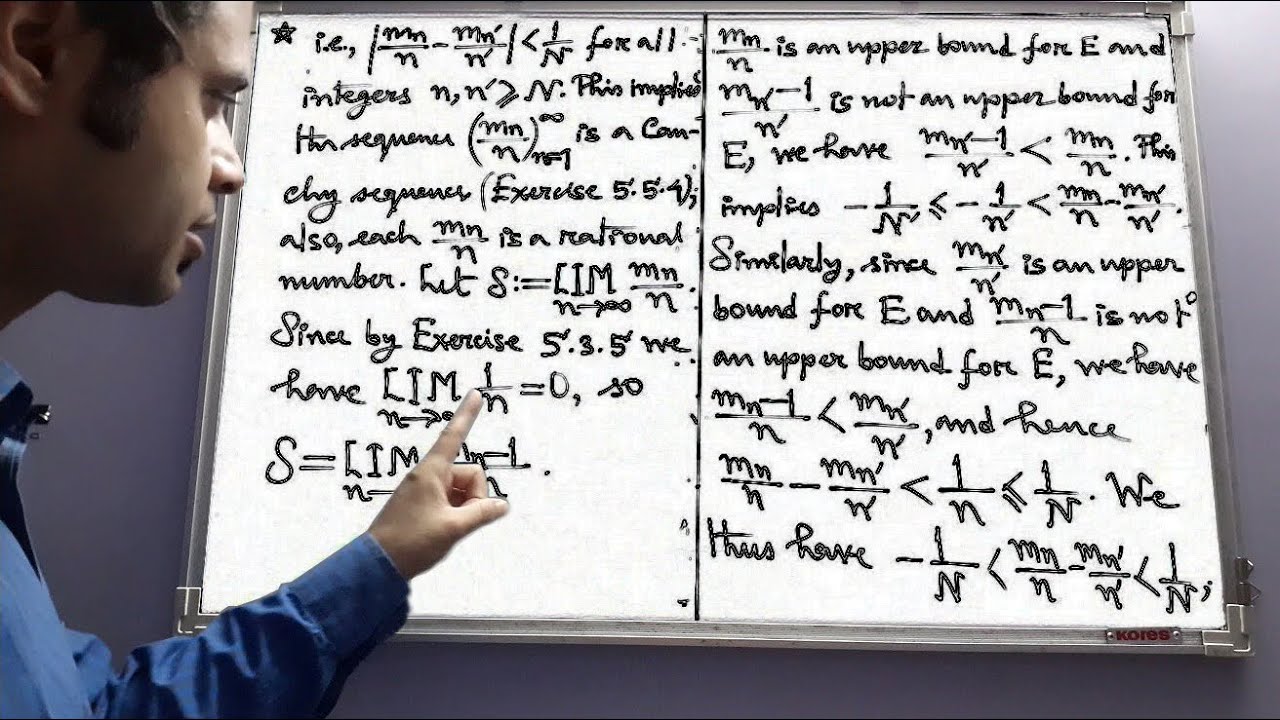 ☆ i.e., |mn/n - mn'/n'| < 1/N for all
integers n, n' ⩾ N. This implies
the sequence (mn/n)∞n=1 is a Cau-
chy sequence (Exercise 5.5.4);
also, each mn/n is a rational
number. Let S := LIM n→∞ mn/n.
Since by Exercise 5.3.5 we
have LIM n→∞ 1/n = 0, so
S = LIM n→ mn-1/n.
mn/n is an upper bound for E and
mn'-1/n' is not an upper bound for
E, we have mn'-1/n' < mn/n. This
implies -1/N ⩽ -1/n' < mn/n - mn'/n'.
Similarly, since mn'/n' is an upper
bound for E and mn-1/n is not
an upper bound for E, we have
mn-1/n < mn'/n', and hence
mn/n - mn'/n' < 1/n ⩽ 1/N. We
thus have -1/N < mn/n - mn'/n' < 1/N;
KORES